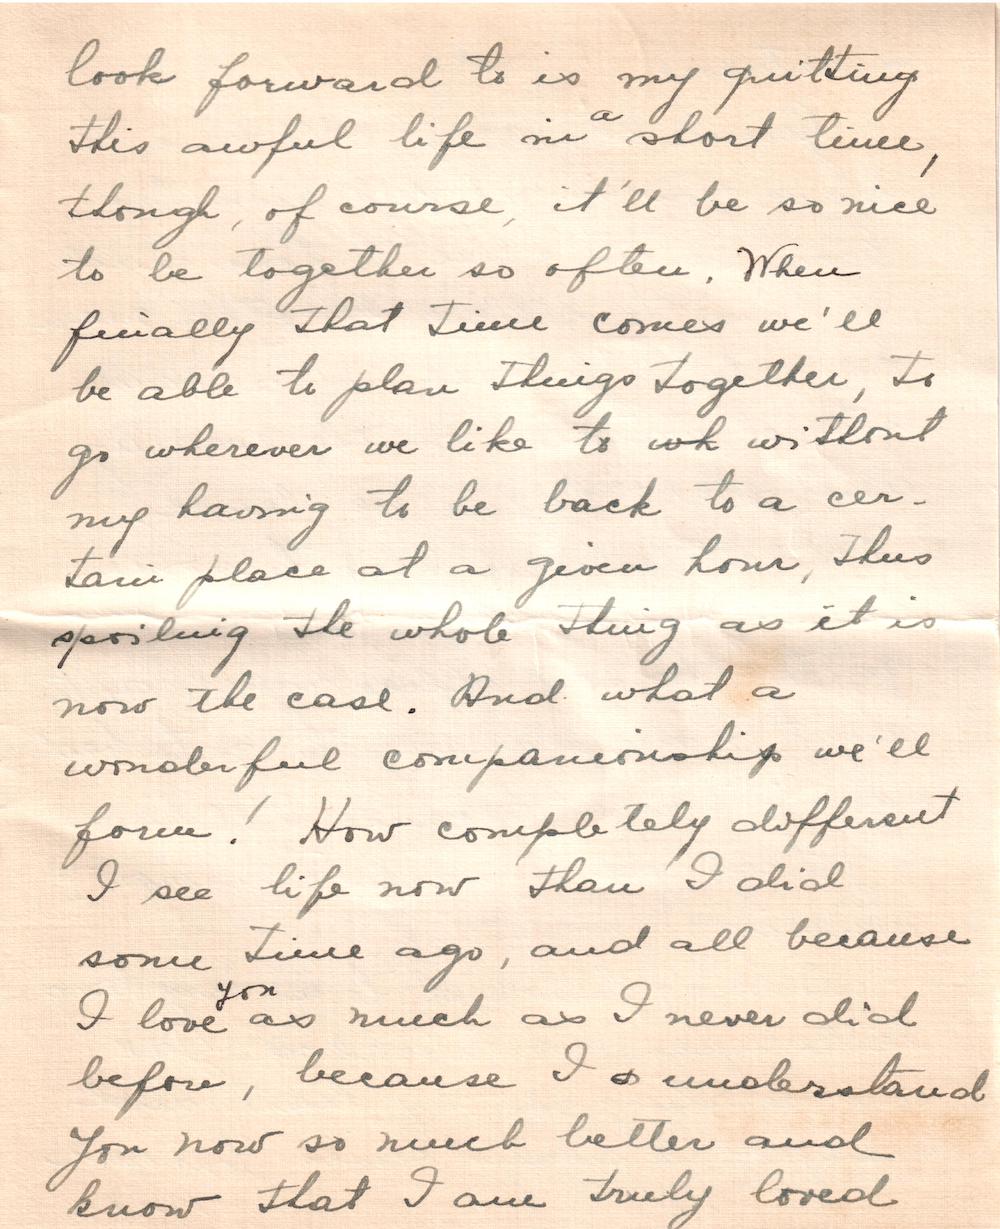 look forward to is my quitting
this awful life in a short time,
though, of course, it'll be so nice
to be together so often. When
finally that time comes we'll
be able to plan things together, to
go wherever we like to without
my having to be back to a cer-
tain place at a given hour, thus
spoiling the whole thing as it is
now the case. And what a
wonderful companionship we'll
form! How completely different
I see life now than I did
some time ago, and all because
I love you as much as I never did
before, because I understand
you now so much better and
know that I am truly loved